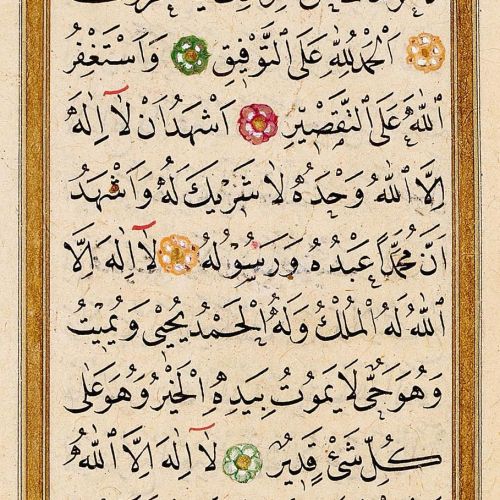 اَلْحَمْدُ لِلّٰهِ عَلَى التَّوْفِيقِ وَاَسْتَغْفِرُ
اللّٰهَ عَلَى التَّقْصِيرِ اَشْهَدُ اَنْ لَآ اِلٰهَ
اِلَّا اللّٰهُ وَحْدَهُ لَا شَرِيكَ لَهُ وَاَشْهَدُ
اَنَّ مُحَمَّدًا عَبْدُهُ وَرَسُولُهُ لَآ اِلٰهَ اِلَّا
اللّٰهُ لَهُ الْمُلْكُ وَلَهُ الْحَمْدُ يُحْيِى وَيُمِيتُ
وَهُوَ حَىٌّ لَا يَمُوتُ بِيَدِهِ الْخَيْرُ وَهُوَ عَلٰى
كُلِّ شَىْءٍ قَدِيرٌ لَآ اِلٰهَ اِلَّا اللّٰهُ